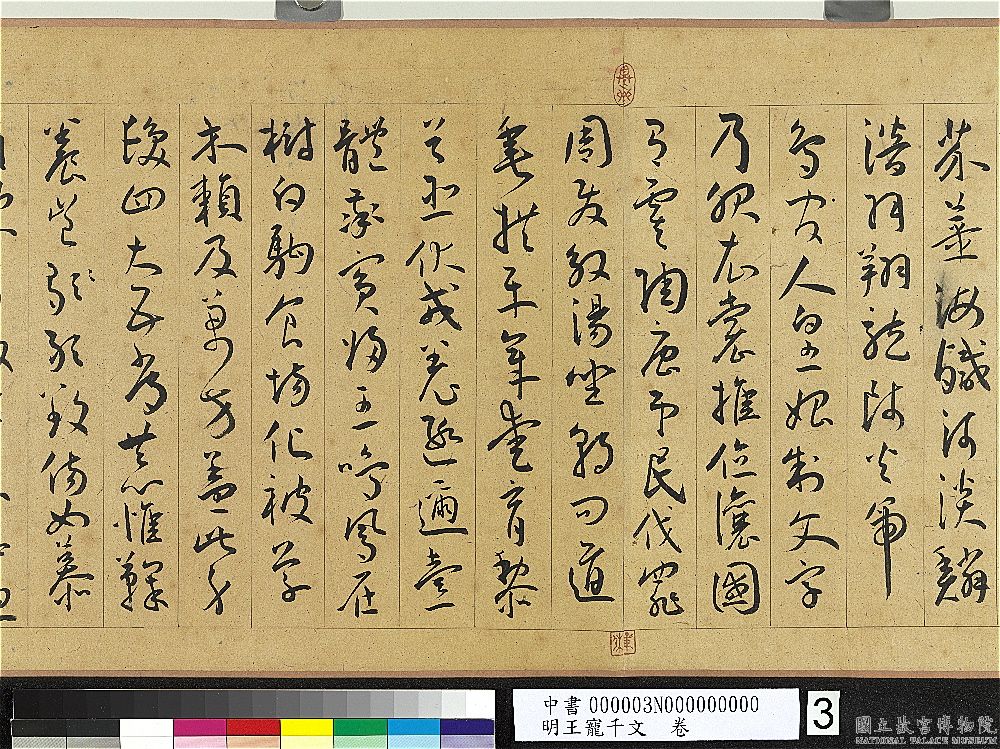 芥薑海鹹河淡鱗
潛羽翔龍師火帝
鳥官人皇始制文字
乃服衣裳推位讓國
有虞陶唐弔民伐罪
周發殷湯坐朝問道
垂拱平章愛育黎
首臣伏戎羌遐邇壹
體率賓歸王鳴鳳在
樹白駒食場化被草
木賴及萬方蓋此身
髮四大五常恭惟鞠
養豈敢毀傷女慕
中書 000003N000000000
明王寵千文 卷
3
國立故宮博物院
NATIONAL PALACE MUSEUM